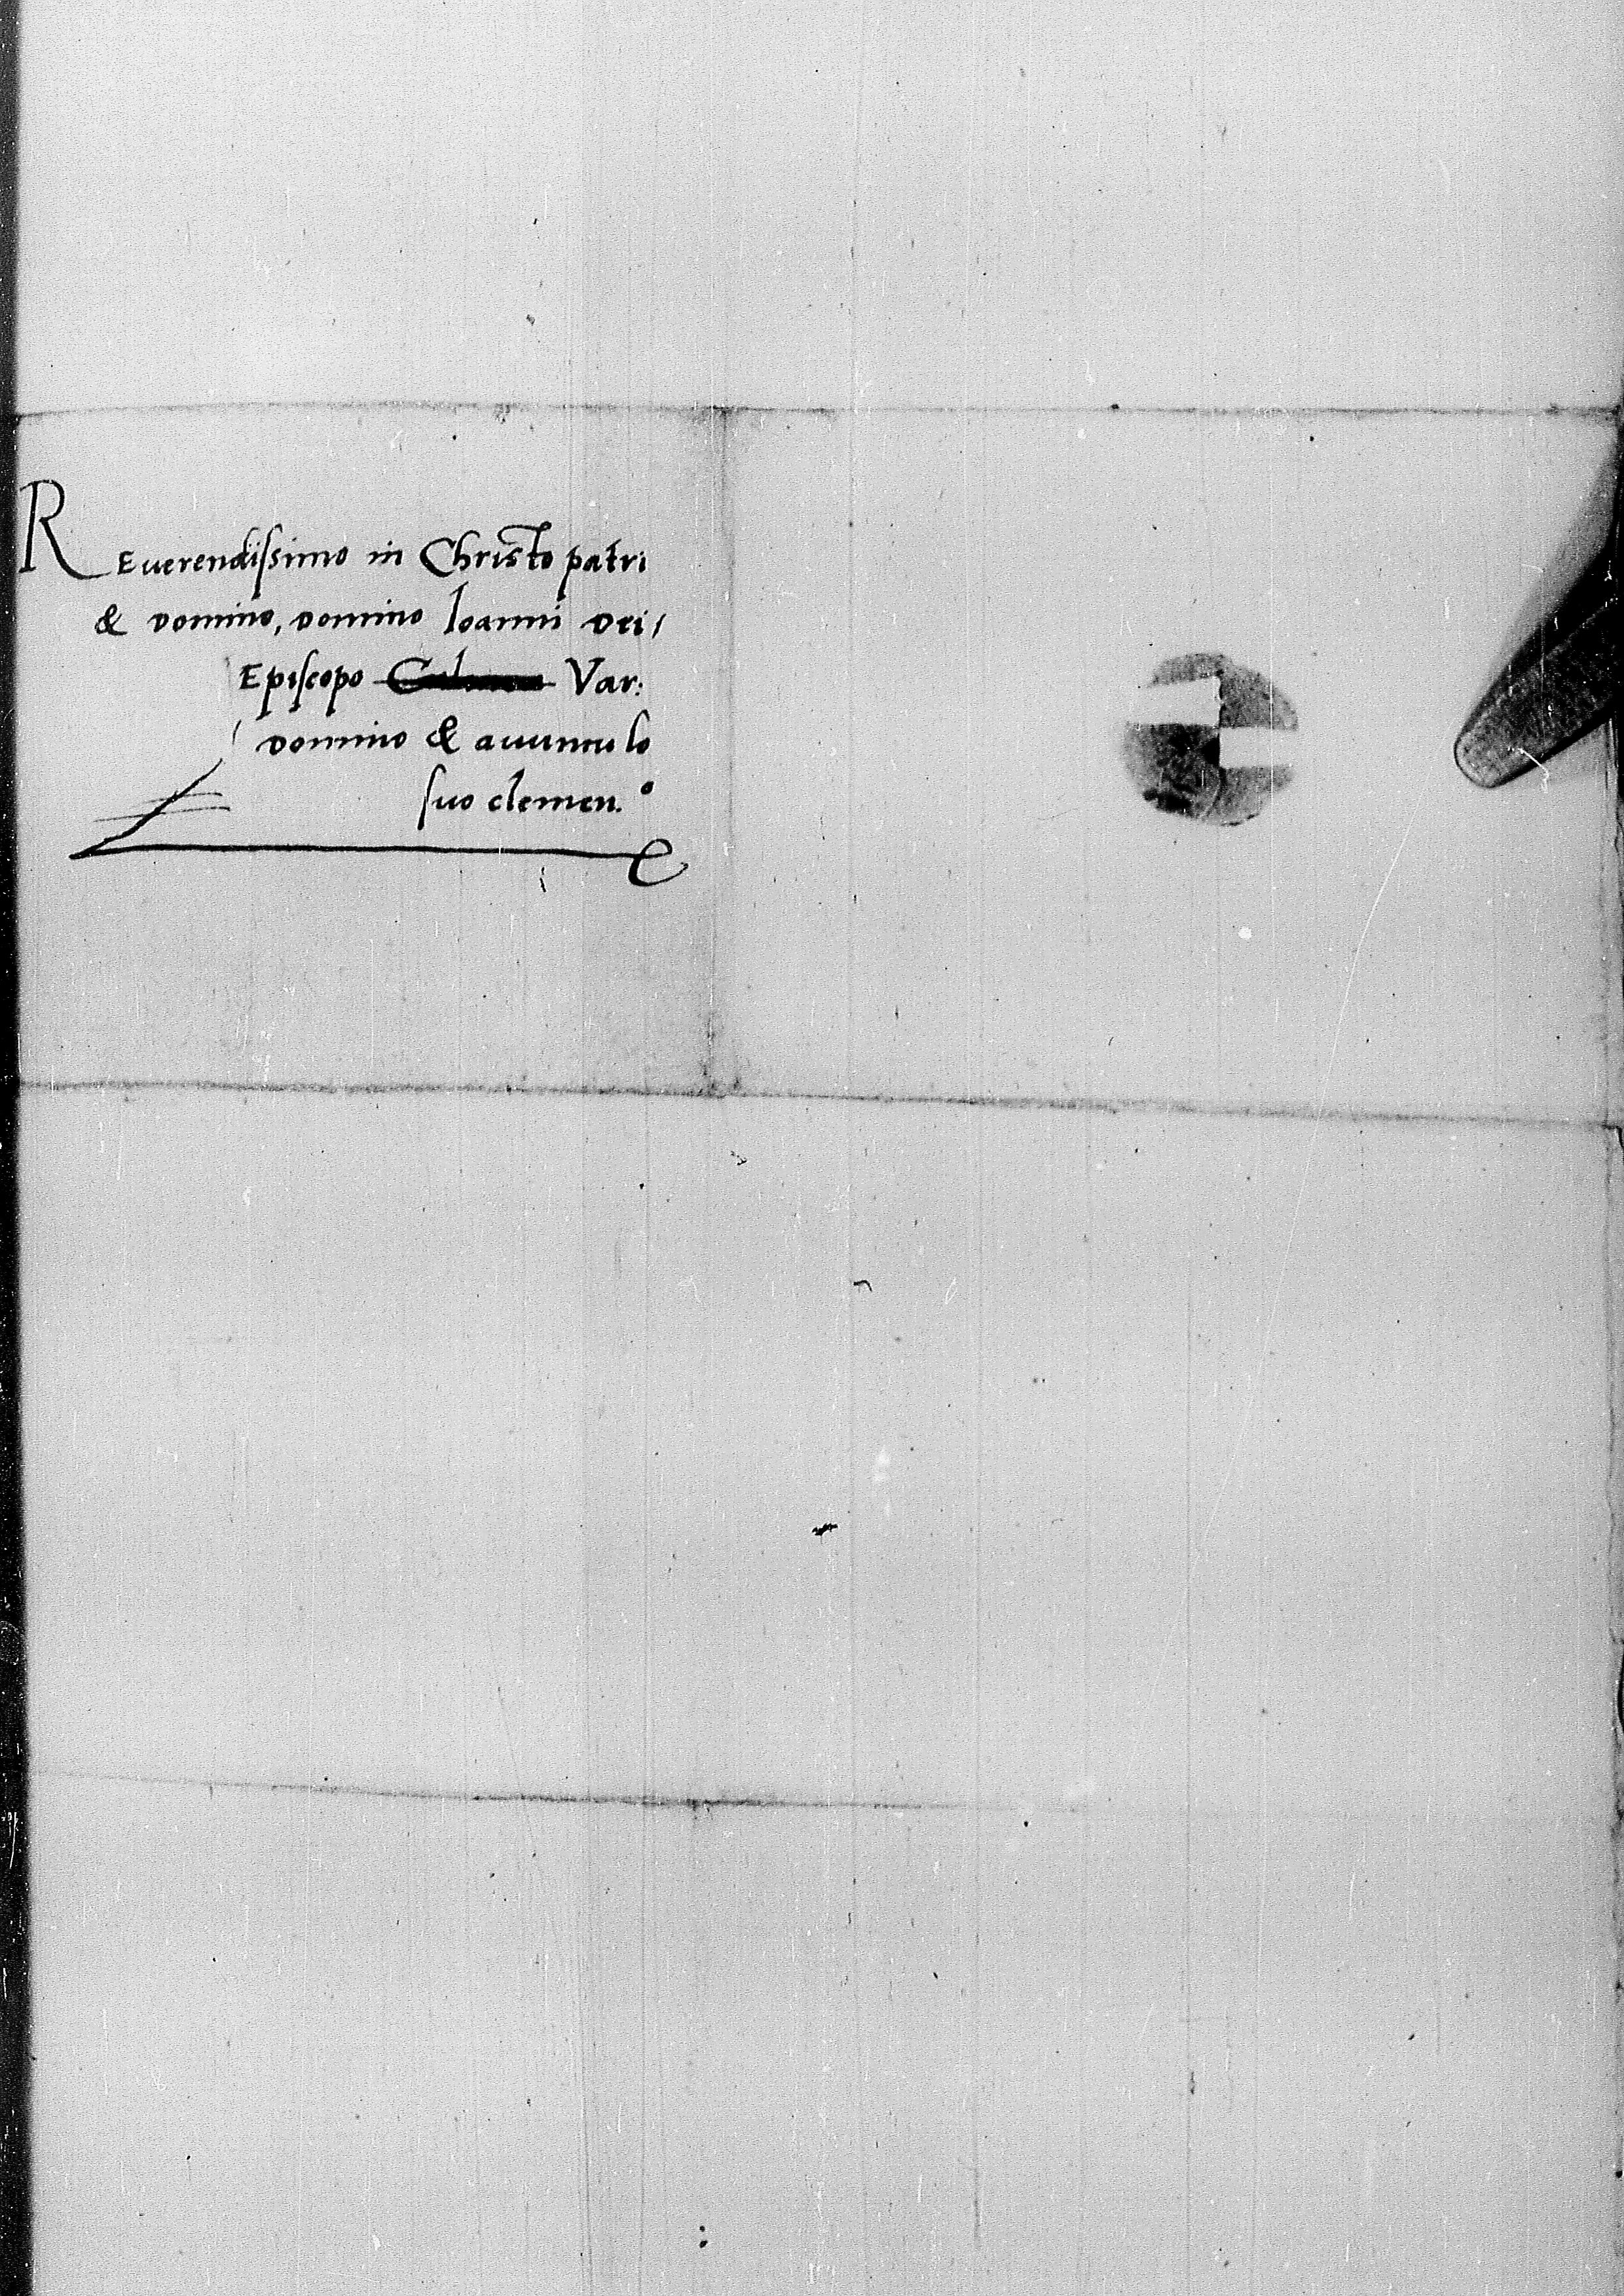 REuerendissimo in Christo patri
& domino, domino Ioanni Dei,
Episcopo Var:
domino & auunculo
suo clemen.º